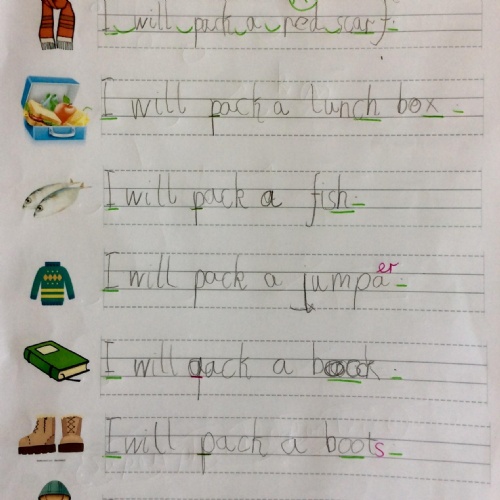 I will pack a red scarf.
I will pack a lunch box.
I will pack a fish.
I will pack a jumpa er.
I will pack a book.
I will pack a boots.